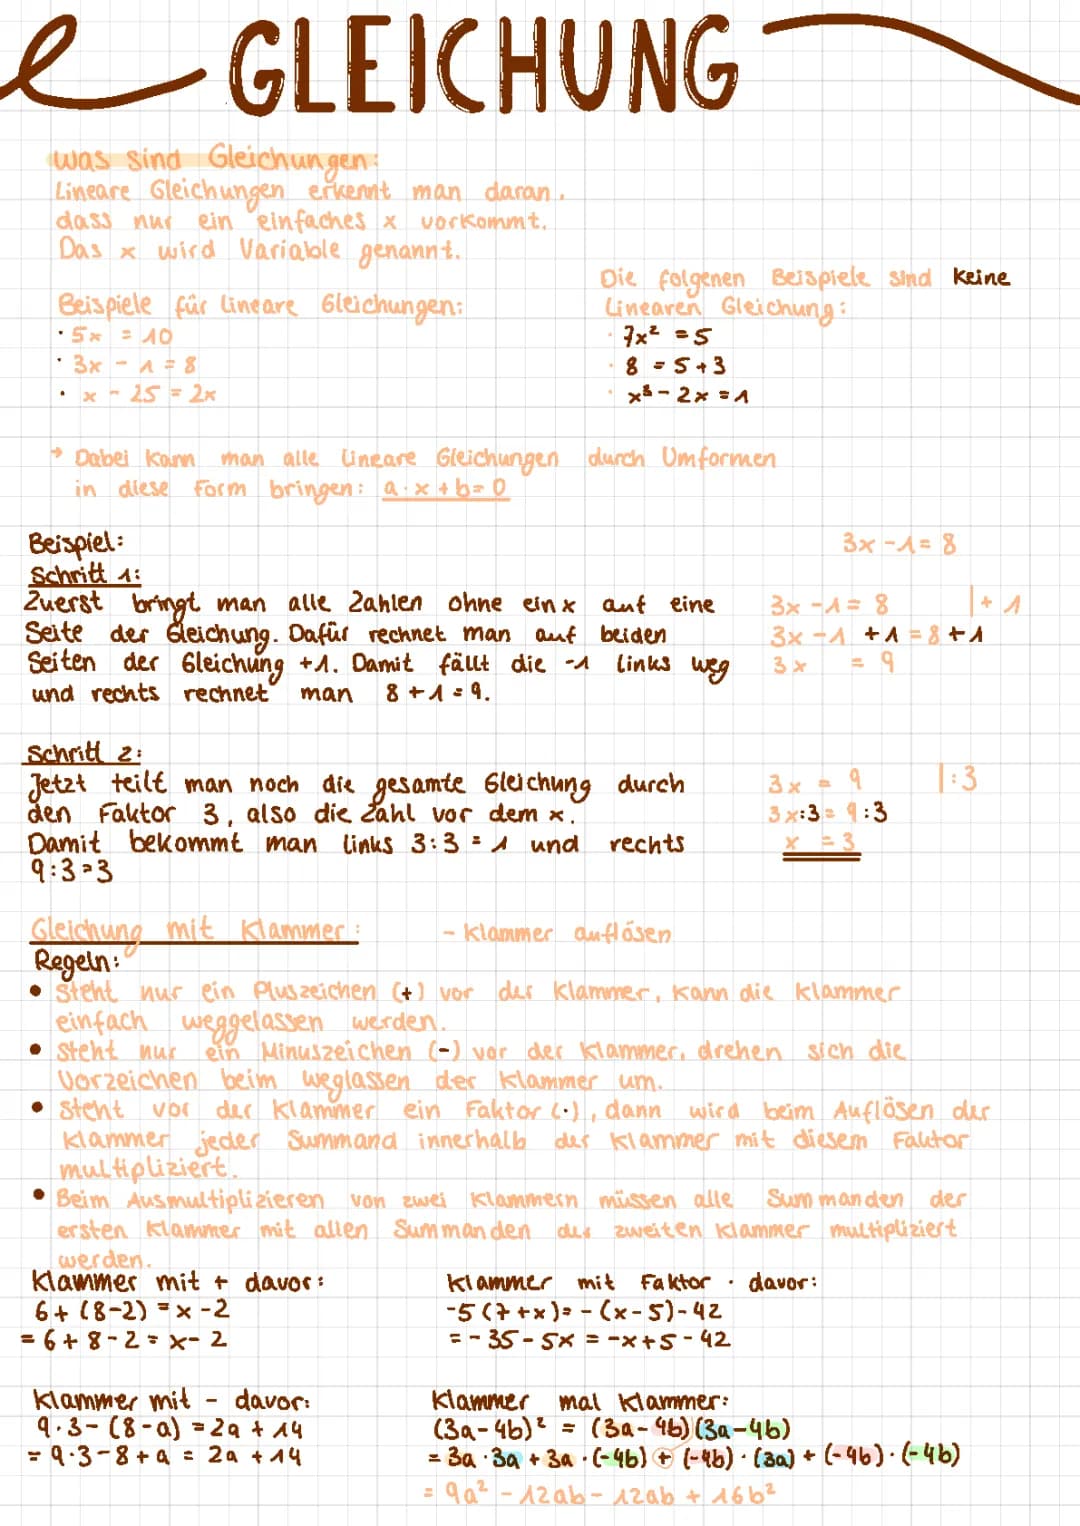 GLEICHUNG
was sind Gleichungen:
Lineare Gleichungen erkennt man daran,
dass nur ein einfaches x vorkommt.
Das x wird Variable genannt.
Beispiele für lineare Gleichungen:
· 5x = 10
· 3x - 1 = 8
· x - 25 = 2x
Die folgenen Beispiele sind keine
Linearen Gleichung:
· 7x² = 5
· 8 = 5 + 3
· x³ - 2x = 1
→ Dabei kann man alle lineare Gleichungen durch Umformen
in diese Form bringen: a · x + b = 0
Beispiel:
3x - 1 = 8
Schritt 1:
Zuerst bringt man alle Zahlen ohne ein x auf eine
Seite der Gleichung. Dafür rechnet man auf beiden
Seiten der Gleichung +1. Damit fällt die -1 links weg
und rechts rechnet man 8 + 1 = 9.
3x - 1 = 8 | + 1
3x - 1 + 1 = 8 + 1
3x = 9
Schritt 2:
Jetzt teilt man noch die gesamte Gleichung durch
den Faktor 3, also die Zahl vor dem x.
Damit bekommt man links 3:3 = 1 und rechts
9:3 = 3
3x = 9 | :3
3x:3 = 9:3
x = 3
Gleichung mit Klammer: - Klammer auflösen
Regeln:
• Steht nur ein Pluszeichen (+) vor der Klammer, kann die Klammer
einfach weggelassen werden.
• Steht nur ein Minuszeichen (-) vor der Klammer, drehen sich die
Vorzeichen beim weglassen der Klammer um.
• Steht vor der Klammer ein Faktor (·), dann wird beim Auflösen der
Klammer jeder Summand innerhalb der Klammer mit diesem Faktor
multipliziert.
• Beim Ausmultiplizieren von zwei Klammern müssen alle Summanden der
ersten Klammer mit allen Summanden der zweiten Klammer multipliziert
werden.
Klammer mit + davor:
6 + (8-2) = x - 2
= 6 + 8 - 2 = x - 2
Klammer mit Faktor · davor:
-5 (7 + x) = - (x - 5) - 42
= - 35 - 5x = -x + 5 - 42
Klammer mit - davor:
9 · 3 - (8 - a) = 2a + 14
= 9 · 3 - 8 + a = 2a + 14
Klammer mal Klammer:
(3a - 4b)² = (3a - 4b)(3a - 4b)
= 3a · 3a + 3a · (-4b) + (-4b) · (3a) + (-4b) · (-4b)
= 9a² - 12ab - 12ab + 16b²